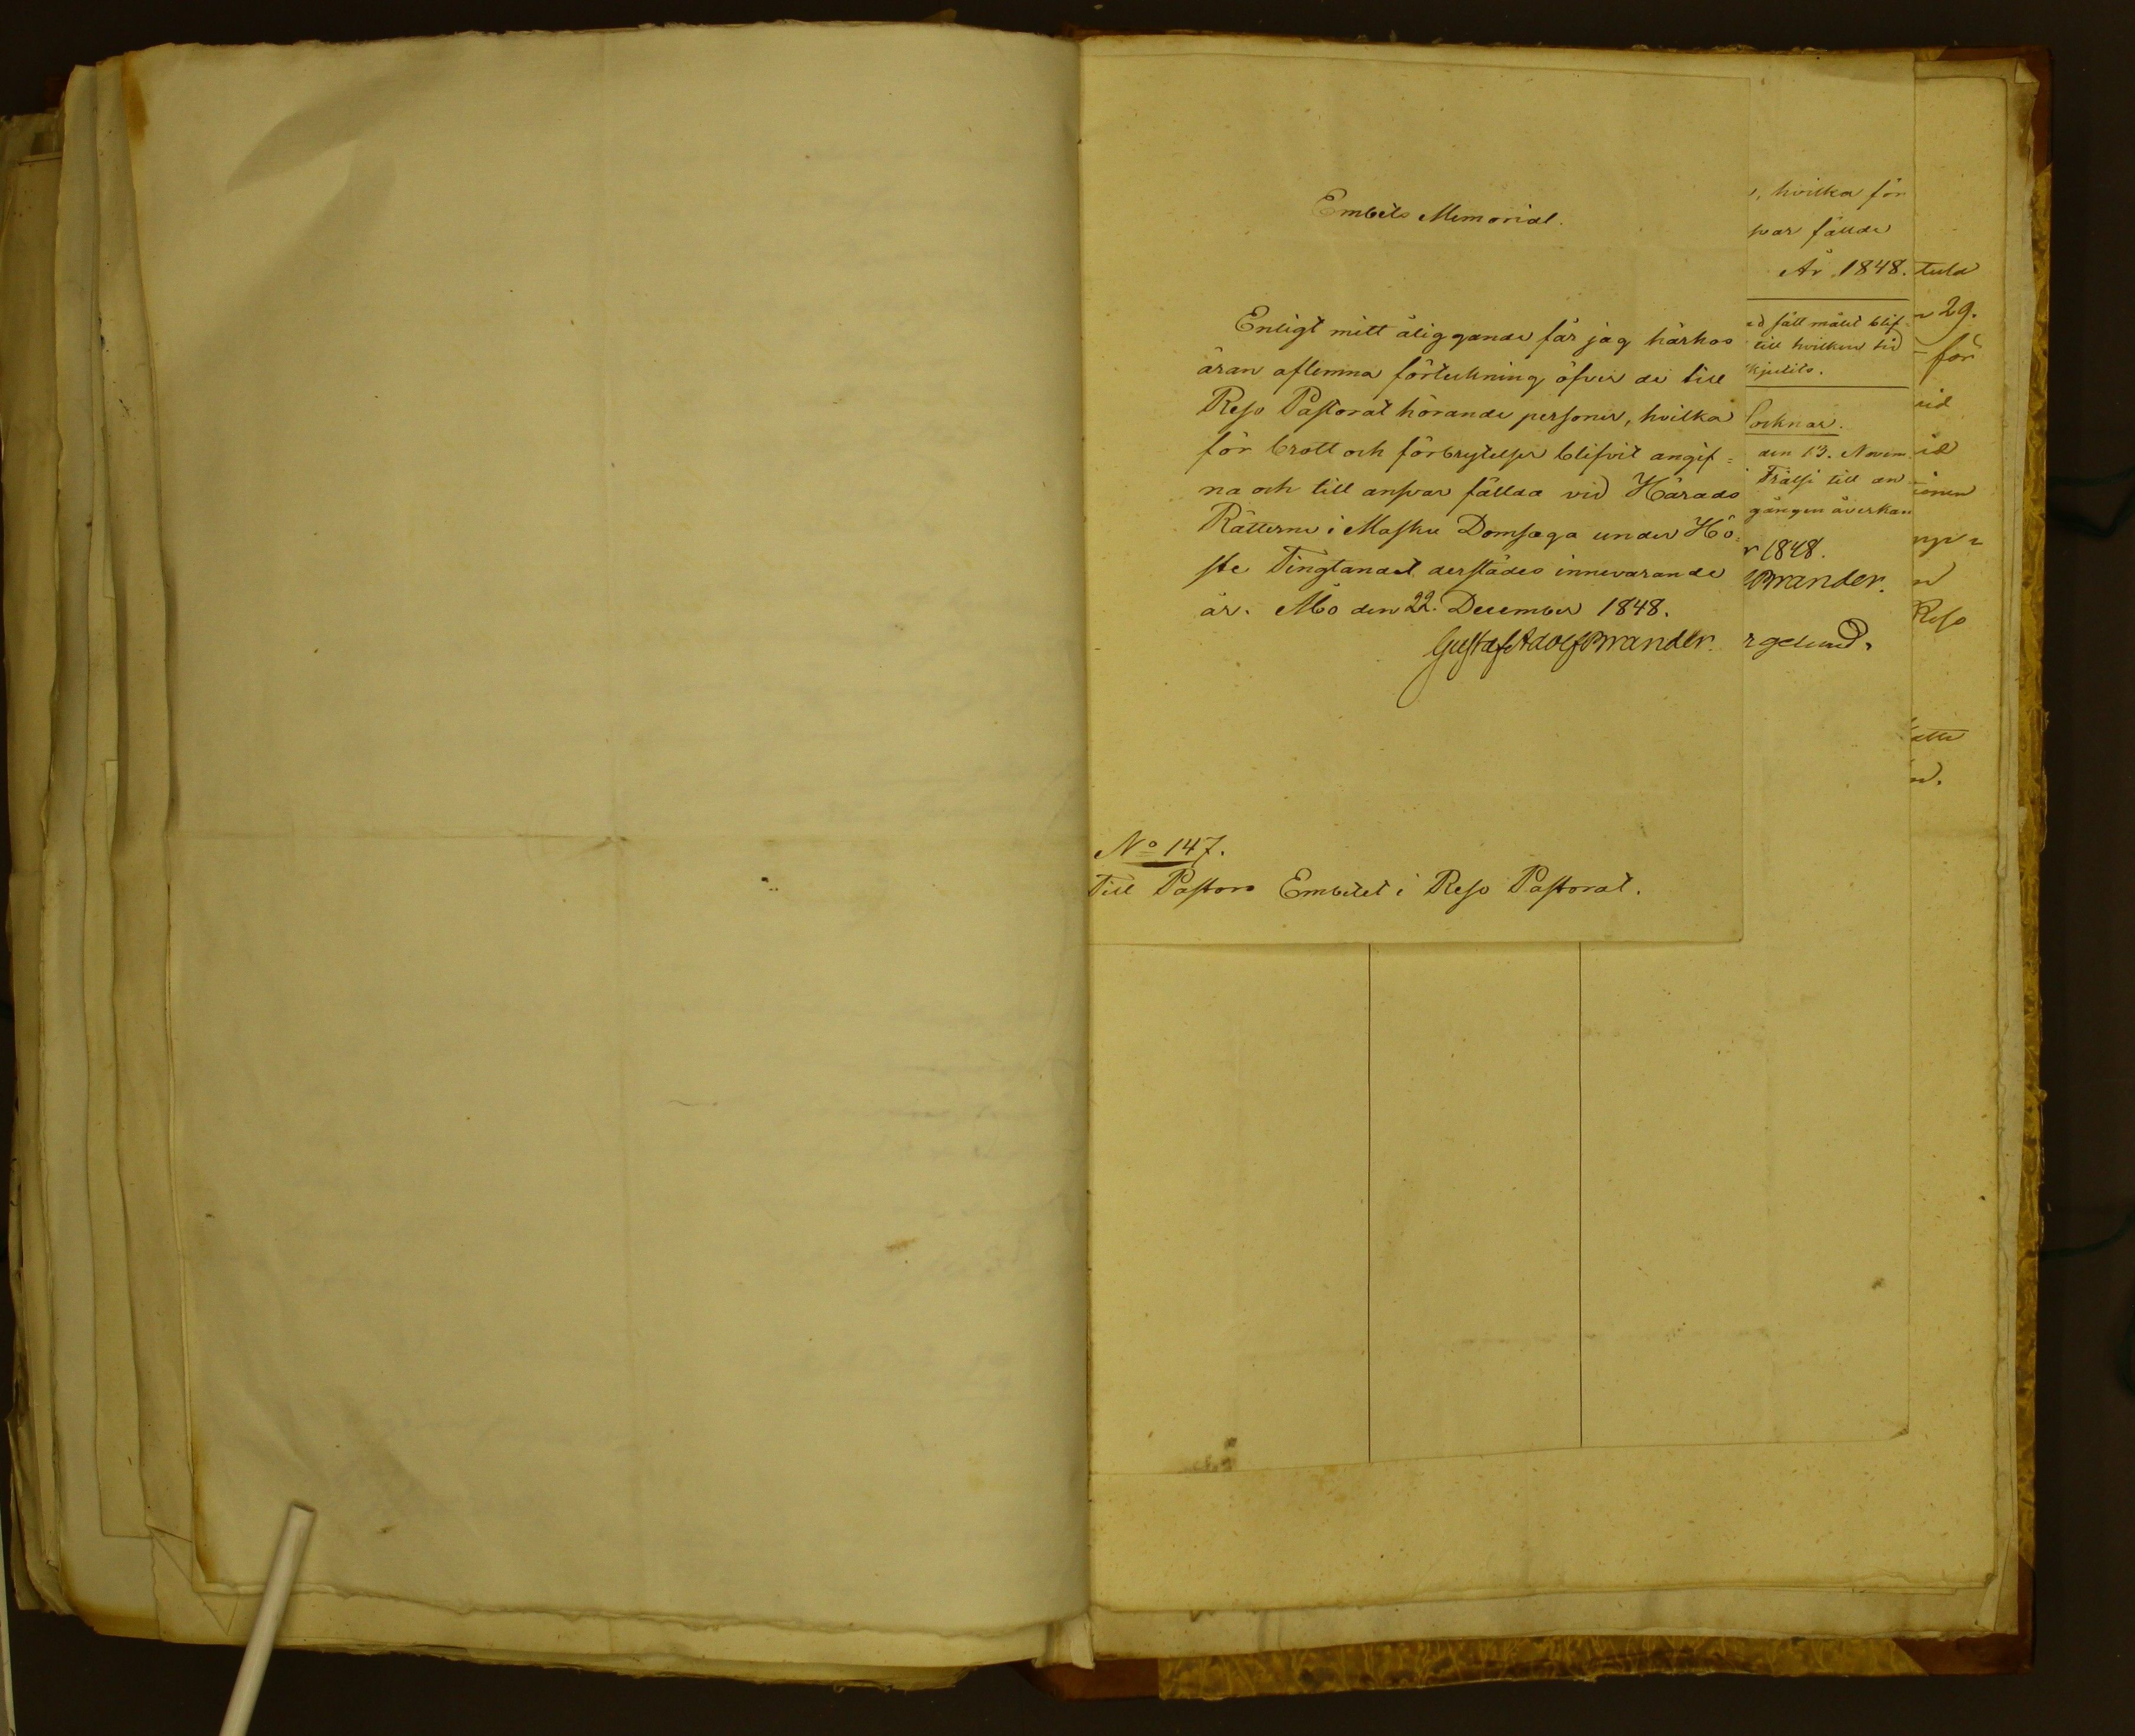 Embets Memorial.
Enligt mitt åliggande får jag härhos
äran aflemna förtekning öfver de till
Reso Pastorat hörande personer, hvilka
för brott och förbrytelser blifvit angif=
na och till ansvar fällda vid Härads
Rätterne i Masku Domsaga under Hö=
ste Tinglandet derstädes innevarande
år. Åbo den 22. December 1848.
Gustaf Adolf Brander.
No 147.
Till Pastors Embetet i Reso Pastorat.
, hvilka för
svar fällde
År 1848.
fall målet blif
till hvilken tid
skjutits.
Socknar.
den 13. Novem
Frälsi till an
gången åverkan
r 1848.
Brander.
gelund.
n 29.
för
vid
Reso